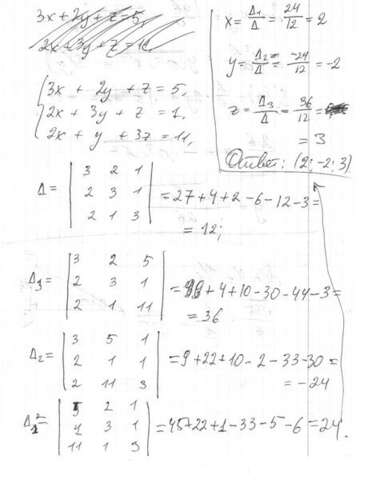 3x+2y+z=5,
2x+3y+z=1
3x + 2y + z = 5,
2x + 3y + z = 1,
2x + y + 3z = 11,
Δ = | 3 2 1 |
| 2 3 1 | = 27+4+2-6-12-3 =
| 2 1 3 |
= 12;
Δ3 | 3 2 5 |
| 2 3 1 | = 99+4+10-30-44-3 =
| 2 1 11 |
= 36
Δ2 = | 3 5 1 |
| 2 1 1 | = 9+22+10-2-33-30 =
| 2 11 3 |
= -24
Δ1 = | 5 2 1 |
| 1 3 1 | = 45+22+1-33-5-6 = 24.
| 11 1 3 |
x = Δ1/Δ = 24/12 = 2
y = Δ2/Δ = -24/12 = -2
z = Δ3/Δ = 36/12 =
= 3
Ответ: (2; -2; 3)